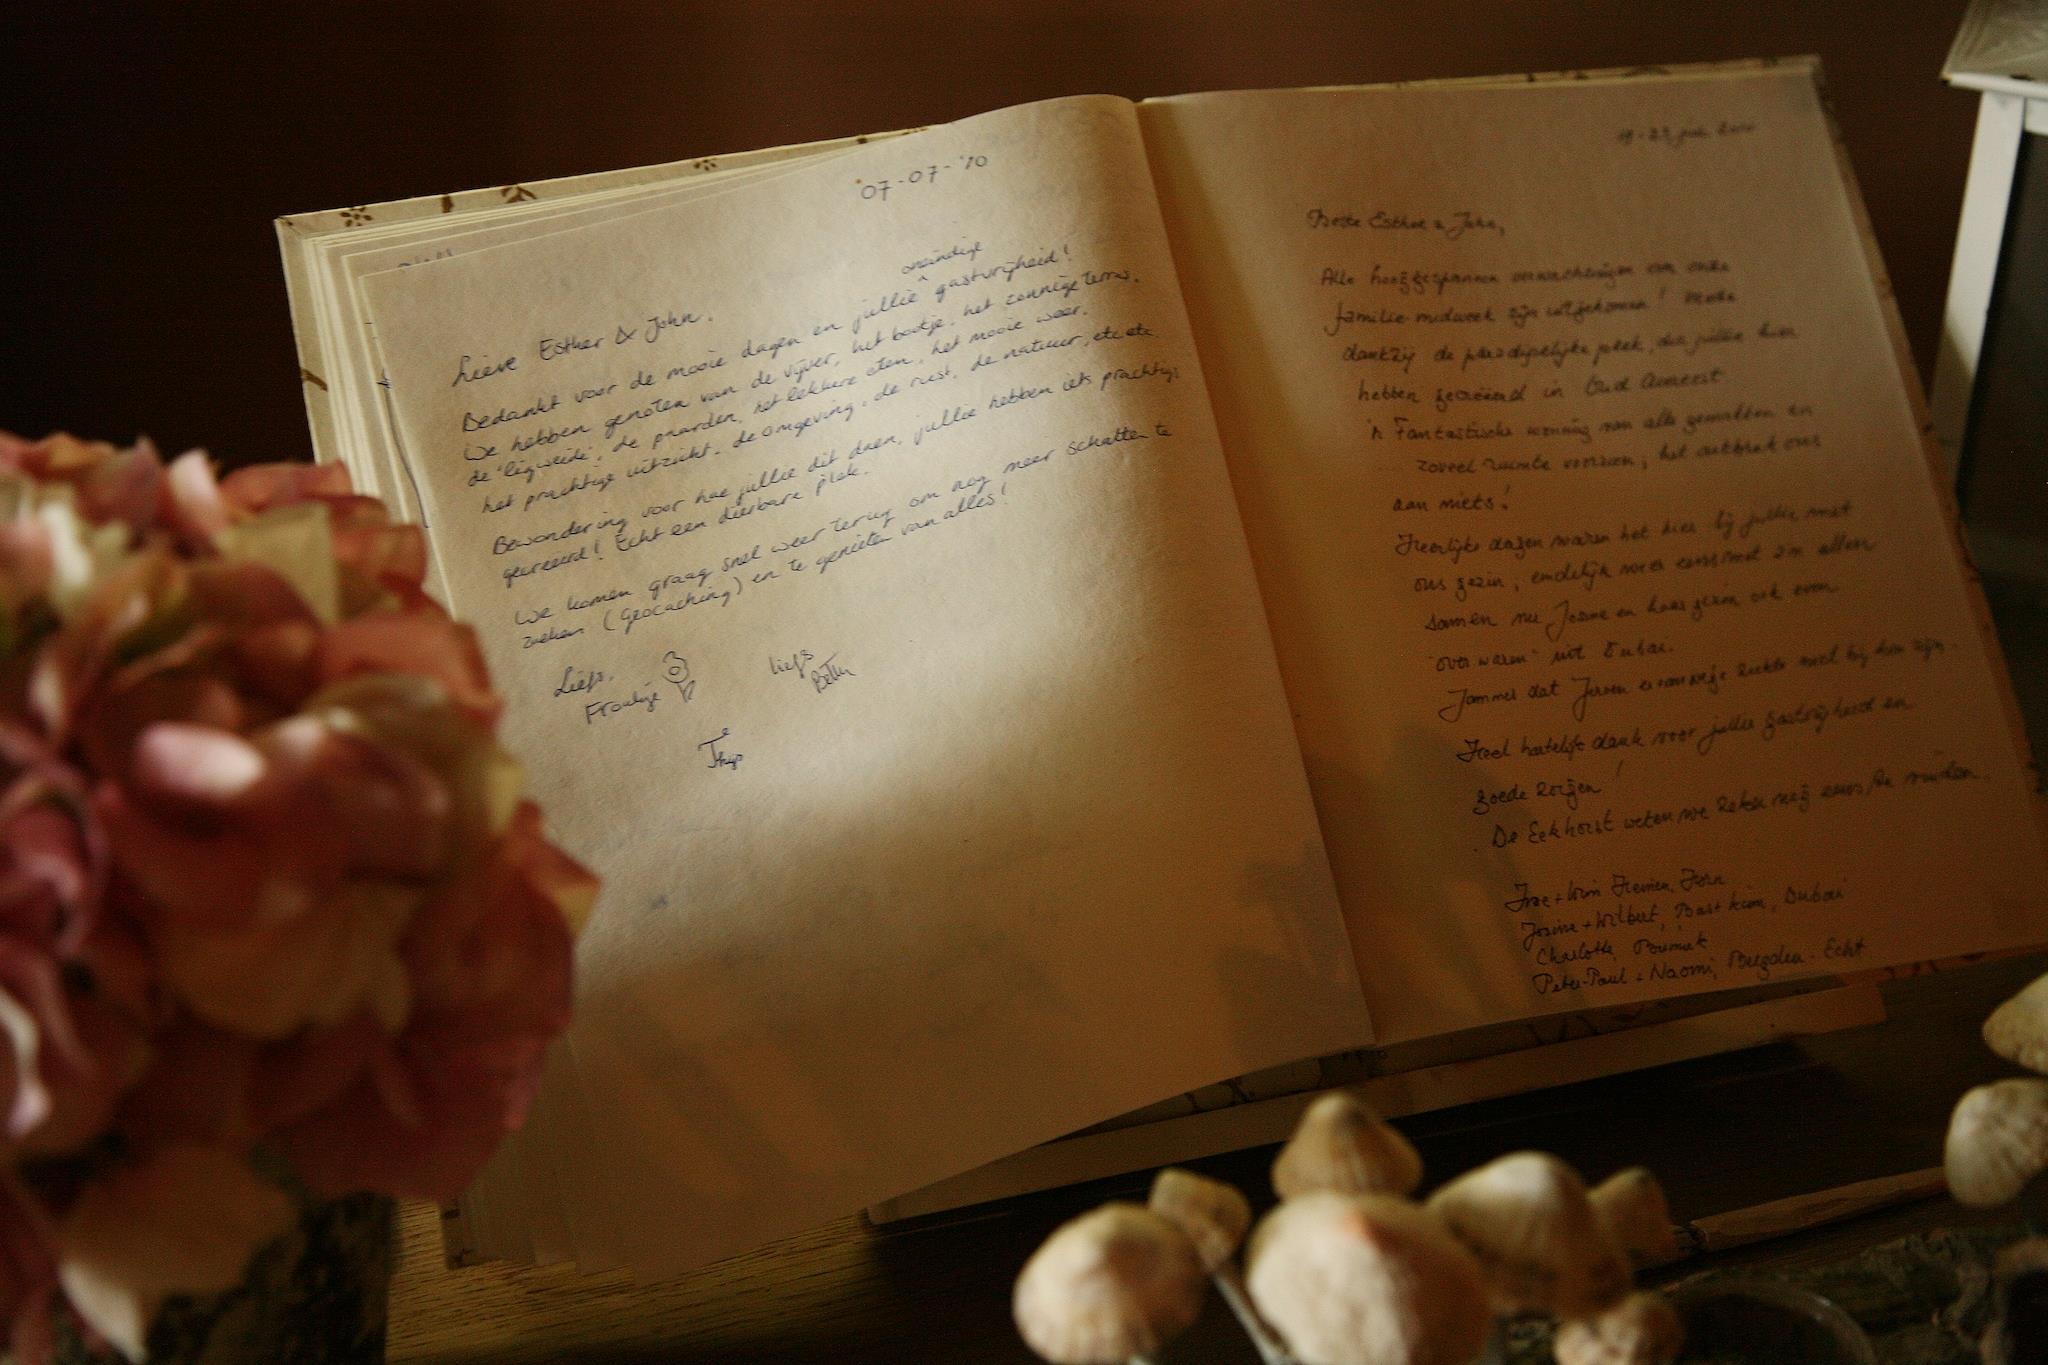 07-07-'10
Lieve Esther & John,
Bedankt voor de mooie dagen en jullie oneindige gastvrijheid!
We hebben genoten van de vijver, het bootje, het zonnige terras,
de 'ligweide', de paarden, het lekkere eten, het mooie weer,
het prachtige uitzicht, de omgeving, de rust, de natuur, etc etc
Bewondering voor hoe jullie dit doen, jullie hebben iets prachtigs
gecreëerd! Echt een dierbare plek.
We komen graag snel weer terug om nog meer schatten te
zoeken (Geocaching) en te genieten van alles!
Liefs,
liefs
Thijs
19-23 juli 2010
Beste Esther & John,
Alle hooggespannen verwachtingen van onze
familie-midweek zijn uitgekomen! Mede
dankzij de paradijselijke plek, die jullie hier
hebben gecreëerd in Oud Avereest.
'n Fantastische woning van alle gemakken en
zoveel ruimte voorzien; het ontbrak ons
aan niets!
Heerlijke dagen waren het hier bij jullie met
ons gezin; eindelijk weer eens met z'n allen
samen nu Josine en haar gezin ook even
"over waren" uit Dubai.
Jammer dat Jeroen er vanwege ziekte niet bij kon zijn.
Heel hartelijk dank voor jullie gastvrijheid en
goede zorgen!
De Eekhorst weten we zeker nog eens te vinden.
Josine + Wilbert, Bas + Kim, Dubai
Charlotte,
Peter-Paul + Naomi, - Echt